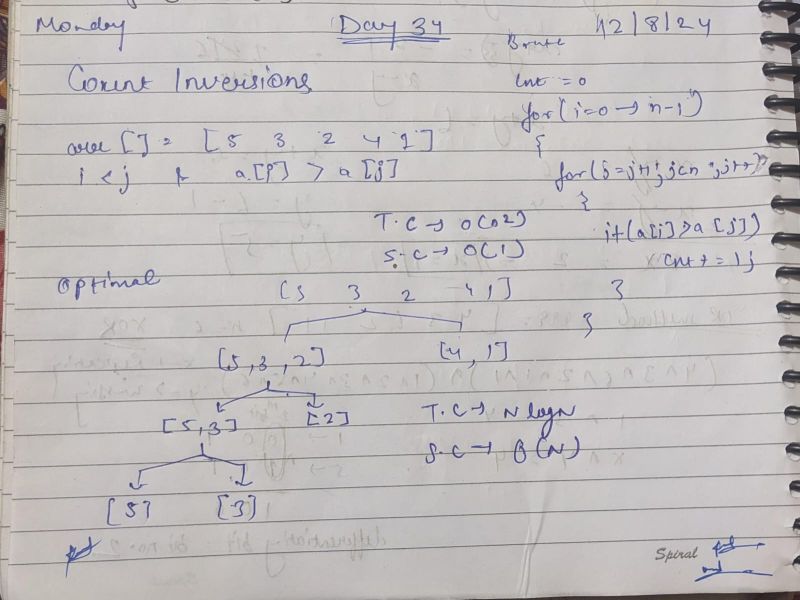 Monday Day 34 12/8/24
Count Inversions
arr[] = [5 3 2 4 1]
i < j & a[i] > a[j]
Brute
cnt = 0
for(i=0 → n-1)
{
for(j=i+1; j<n; j++)
{
if(a[i]>a[j])
cnt += 1;
}
}
T.C → O(n2)
S.C → O(1)
Optimal
[5 3 2 4 1]
[5, 3, 2] [4, 1]
[5, 3] [2]
[5] [3]
T.C → N log N
S.C → O(N)
Spiral